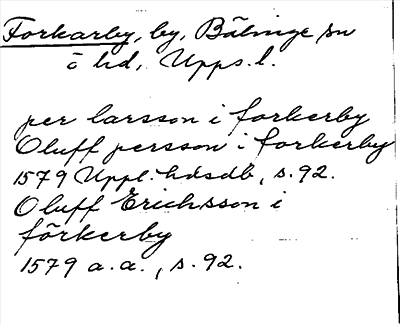 Forkarby, by, Bälinge sn
o hd, Upps.l.
per larsson i forkerby
Oluff persson i forkerby
1579 Uppl. hdsdb, s. 92.
Oluff Erichsson i
förkerby
1579 a.a., s. 92.